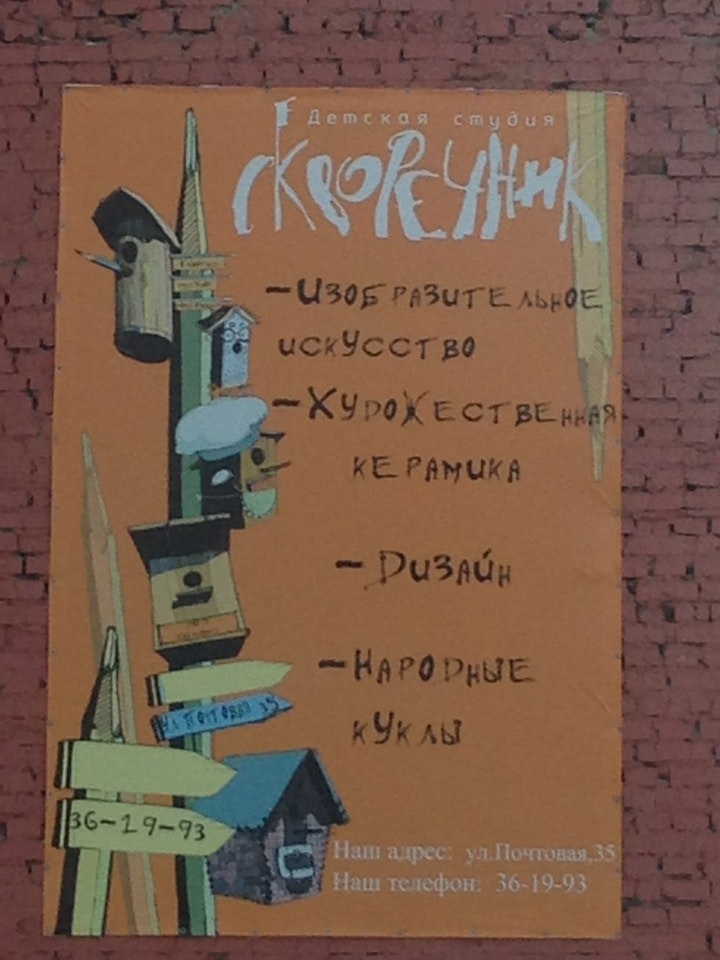 Детская студия
СКВОРЕЧНИК
-ИЗОБРАЗИТЕЛЬНОЕ
ИСКУССТВО
-ХУДОЖЕСТВЕННАЯ
КЕРАМИКА
-ДИЗАЙН
-НАРОДНЫЕ
КУКЛЫ
УЛ ПОЧТОВАЯ 35
36-19-93
Наш адрес: ул.Почтовая,35
Наш телефон: 36-19-93